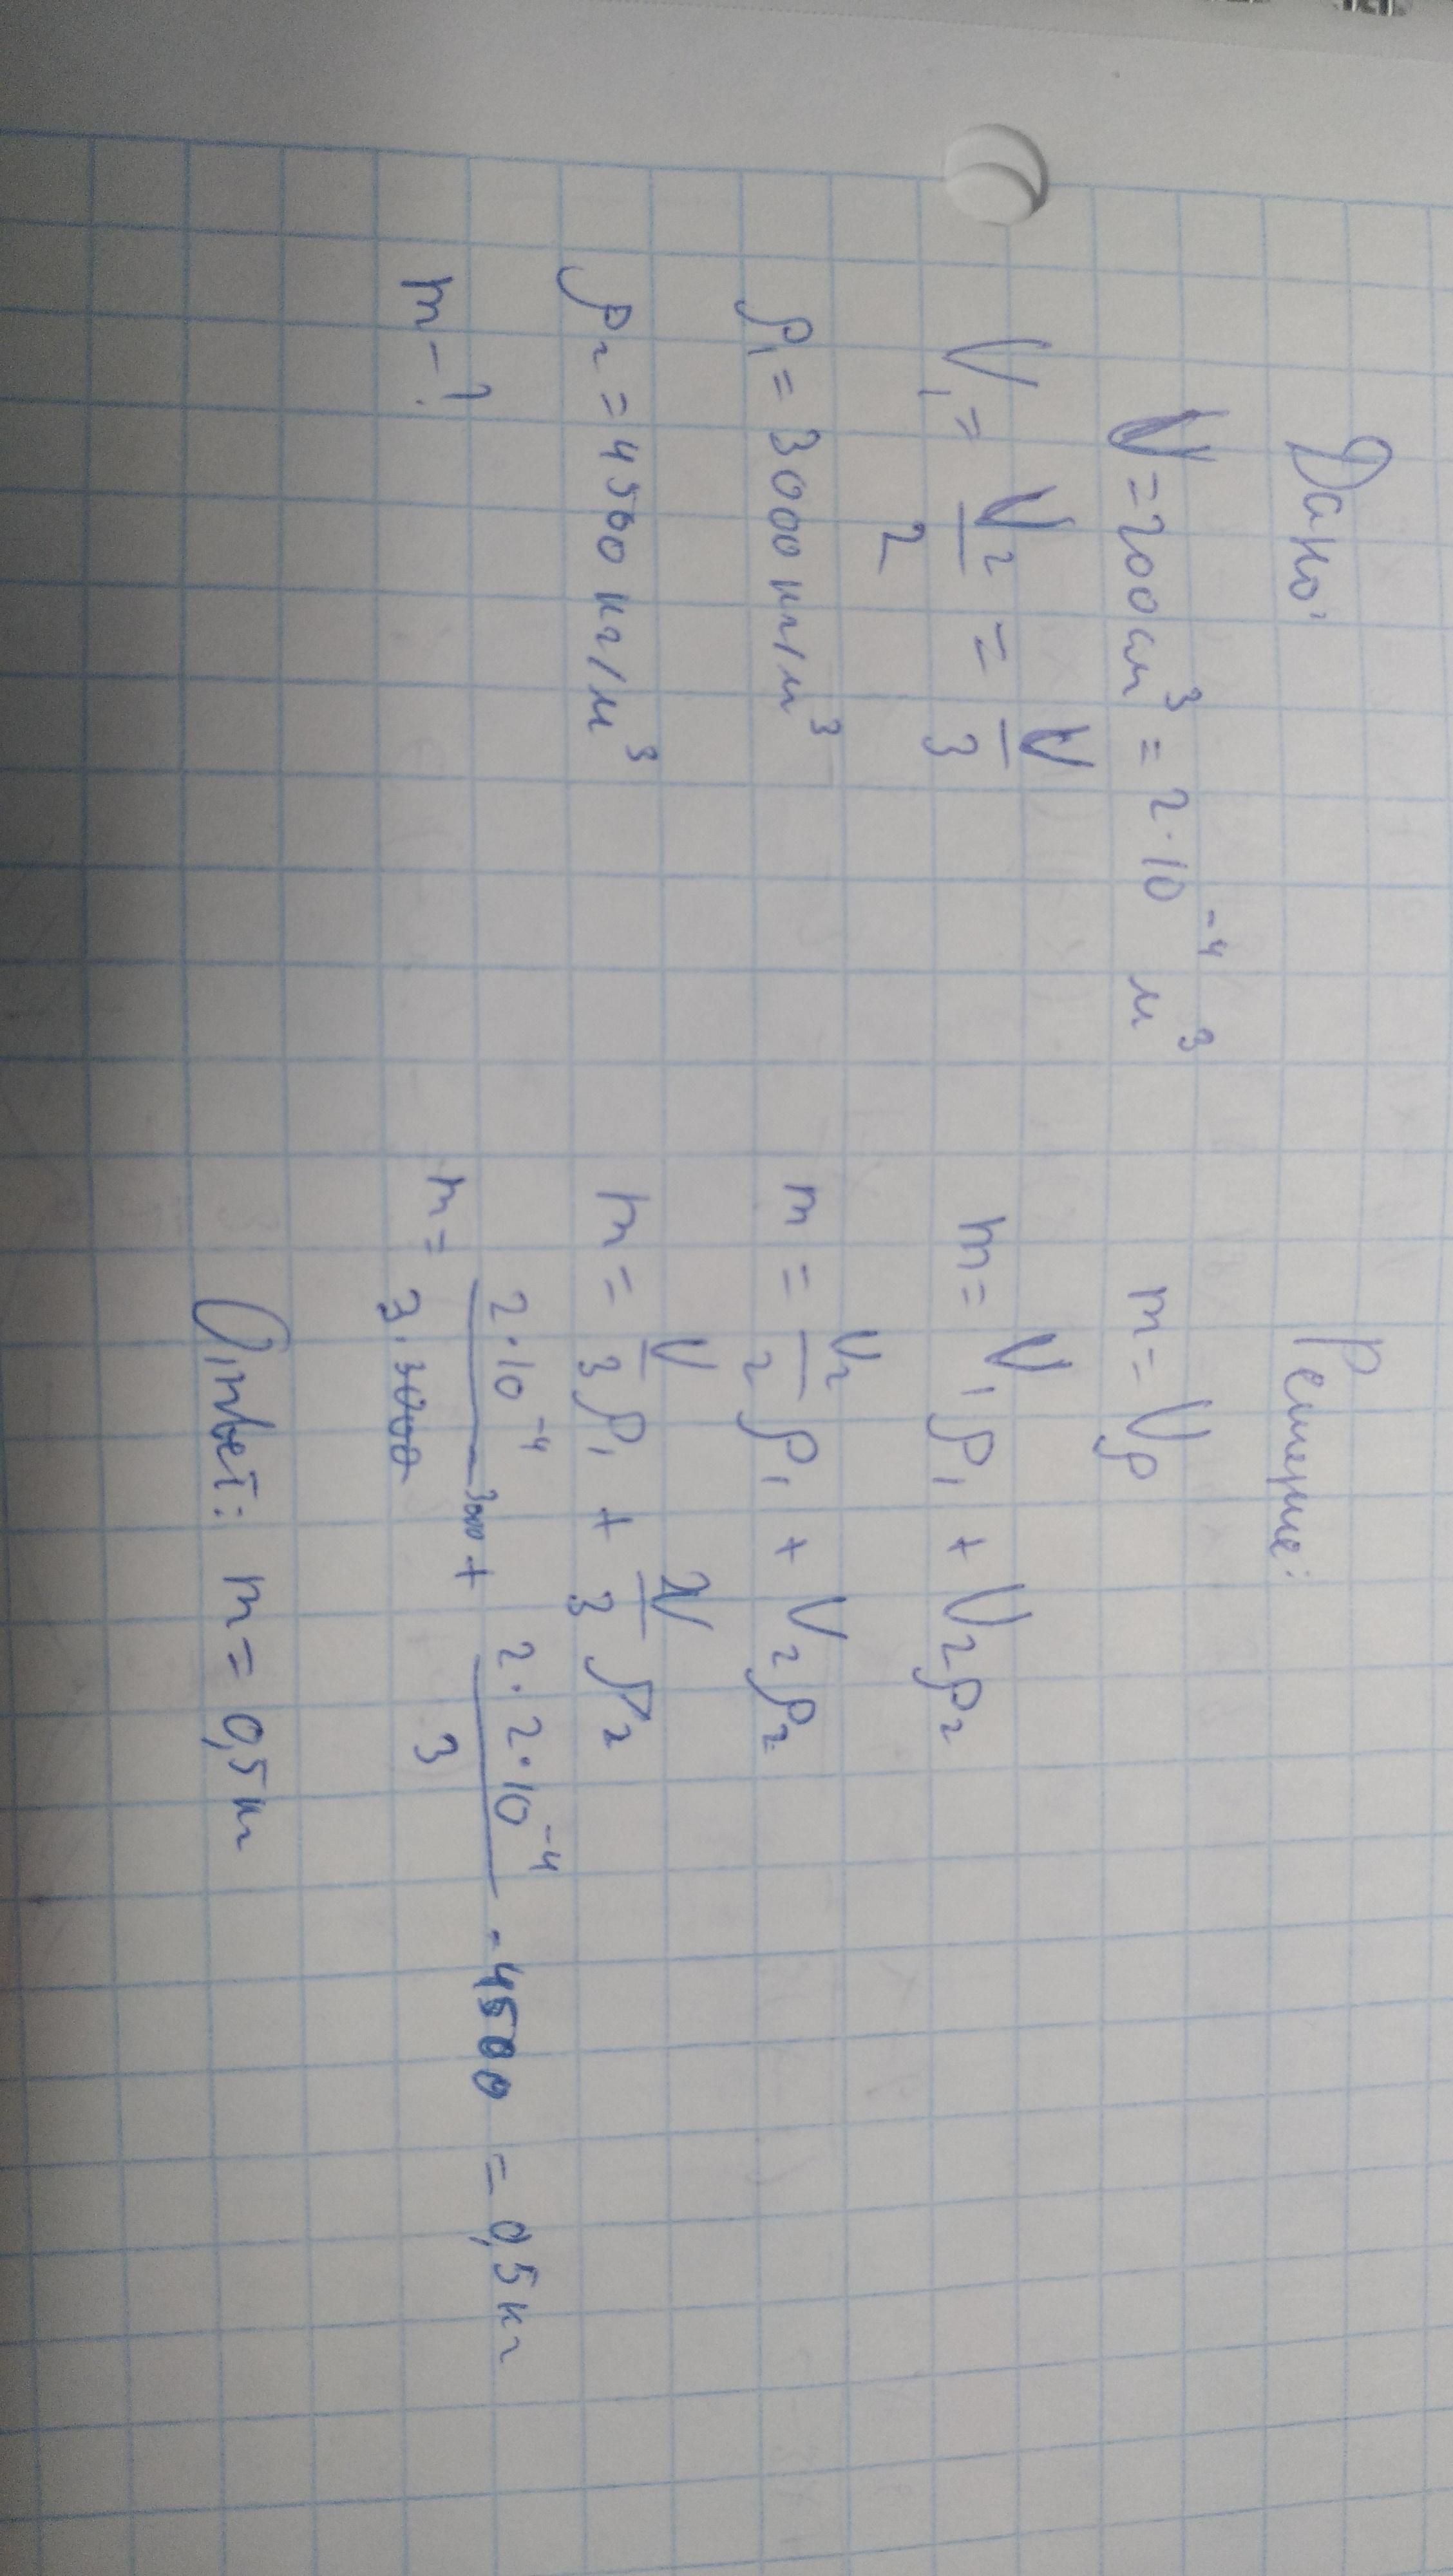 Дано:
V = 200 см³ = 2·10⁻⁴ м³
V₁ = V₂/2 = V/3
ρ₁ = 3000 кг/м³
ρ₂ = 4500 кг/м³
m - ?
Решение:
m = Vρ
m = V₁ρ₁ + V₂ρ₂
m = V₂/2 ρ₁ + V₂ρ₂
m = V/3 ρ₁ + 2V/3 ρ₂
m = 2·10⁻⁴/3 · 3000 + 2·2·10⁻⁴/3 · 4500 = 0,5 кг
Ответ: m = 0,5 кг